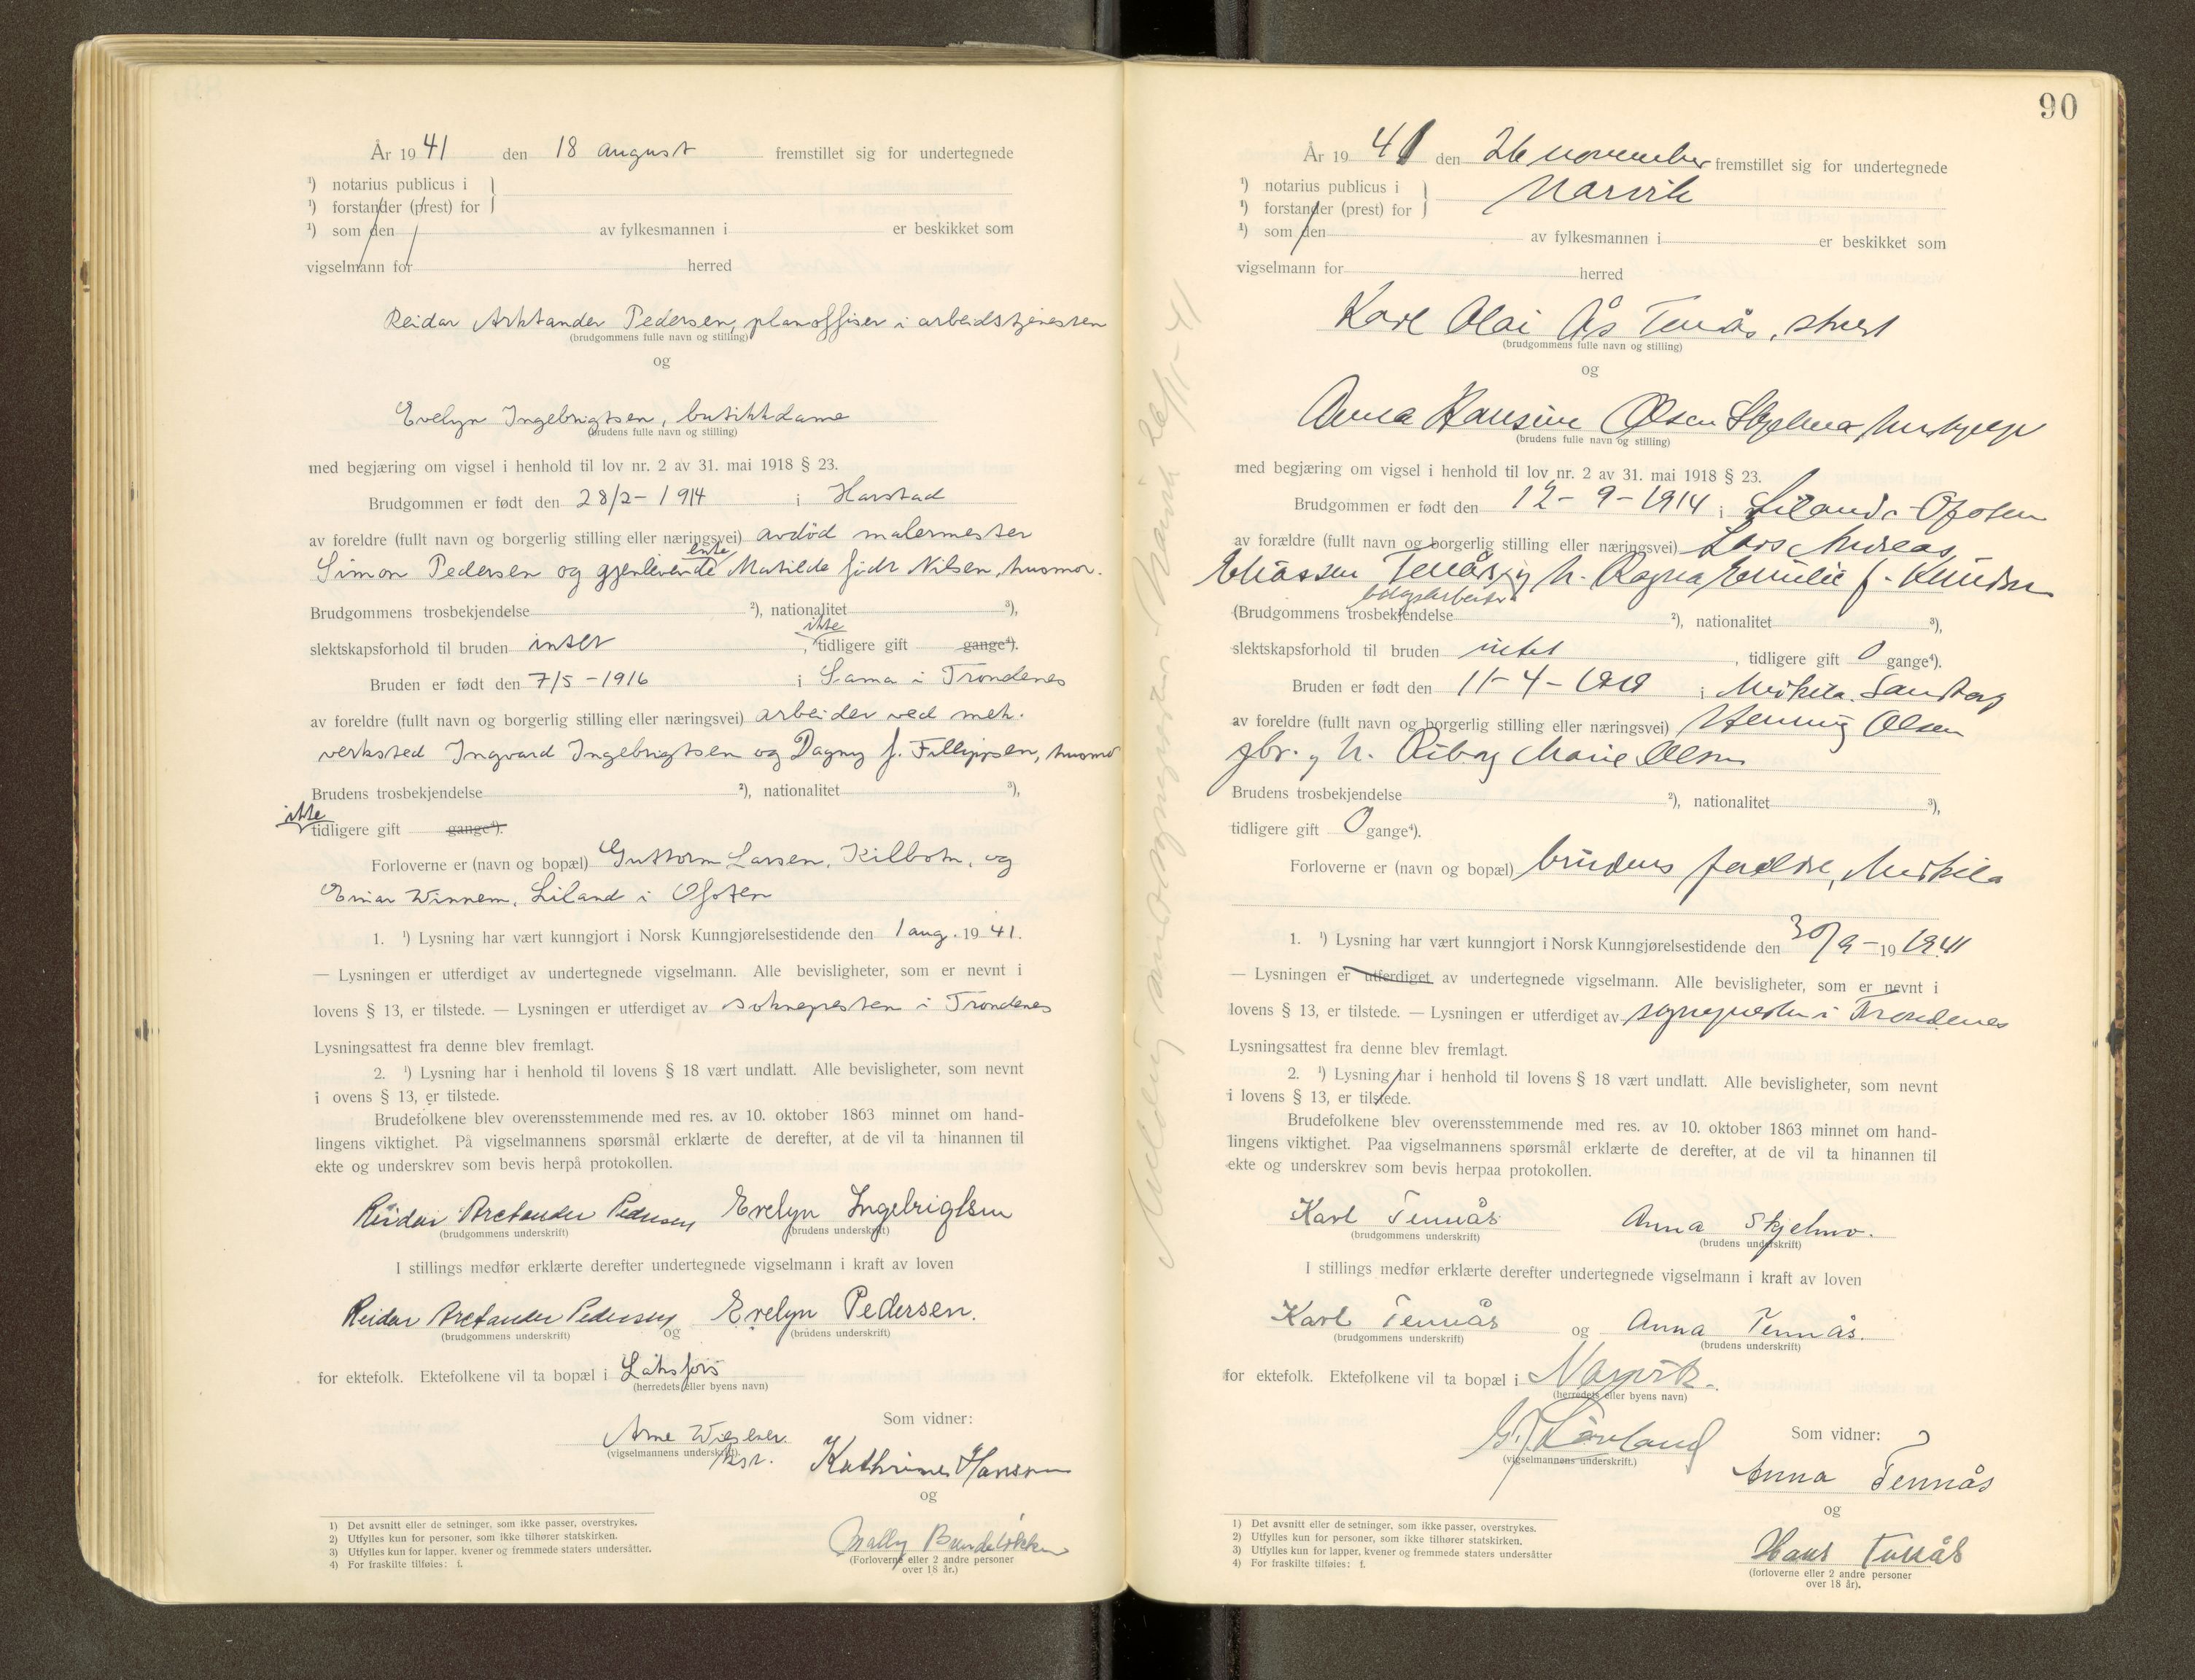 År 1941 den 18 august fremstillet sig for undertegnede
¹) notarius publicus i
¹) forstander (prest) for
¹) som den av fylkesmannen i er beskikket som
vigselmann for herred
Reidar Arktander Pedersen, planoffiser i arbeidstjenesten
(brudgommens fulle navn og stilling)
og
Evelyn Ingebrigtsen, butikkdame
(brudens fulle navn og stilling)
med begjæring om vigsel i henhold til lov nr. 2 av 31. mai 1918 § 23.
Brudgommen er født den 28/2-1914 i Harstad
av foreldre (fullt navn og borgerlig stilling eller næringsvei) avdöd malermester
Simon Pedersen og gjenlevende enke Matilde födt Nilsen, husmor.
Brudgommens trosbekjendelse ²), nationalitet ³),
slektskapsforhold til bruden intet, ikke tidligere gift gange⁴).
Bruden er født den 7/5-1916 i Sama i Trondenes
av foreldre (fullt navn og borgerlig stilling eller næringsvei) arbeider ved mek.
verksted Ingvard Ingebrigtsen og Dagny f. Fillippsen, husmo
Brudens trosbekjendelse ²), nationalitet ³),
ikke tidligere gift gange⁴).
Forloverne er (navn og bopæl) Guttorm Larsen, Kilbotn, og
Einar Winnem, Liland i Ofoten
1. ¹) Lysning har vært kunngjort i Norsk Kunngjørelsestidende den 1 aug. 1941.
— Lysningen er utferdiget av undertegnede vigselmann. Alle bevisligheter, som er nevnt i
lovens § 13, er tilstede. — Lysningen er utferdiget av soknepresten i Trondenes
Lysningsattest fra denne blev fremlagt.
2. ¹) Lysning har i henhold til lovens § 18 vært undlatt. Alle bevisligheter, som nevnt
i ovens § 13, er tilstede.
Brudefolkene blev overensstemmende med res. av 10. oktober 1863 minnet om hand-
lingens viktighet. På vigselmannens spørsmål erklærte de derefter, at de vil ta hinannen til
ekte og underskrev som bevis herpå protokollen.
Reidar Arctander Pedersen Evelyn Ingebrigtsen
(brudgommens underskrift) (brudens underskrift)
I stillings medfør erklærte derefter undertegnede vigselmann i kraft av loven
Reidar Arctander Pedersen og Evelyn Pedersen.
(brudgommens underskrift) (brudens underskrift)
for ektefolk. Ektefolkene vil ta bopæl i Laksfors
(herredets eller byens navn)
Som vidner:
Arne
(vigselmannens underskrift).
Kathrine Hansen
og
(Forloverne eller 2 andre personer
over 18 år.)
1) Det avsnitt eller de setninger, som ikke passer, overstrykes.
2) Utfylles kun for personer, som ikke tilhører statskirken.
3) Utfylles kun for lapper, kvener og fremmede staters undersåtter.
4) For fraskilte tilføies: f.
90
År 1941 den 26 november fremstillet sig for undertegnede
¹) notarius publicus i Narvik
¹) forstander (prest) for
¹) som den av fylkesmannen i er beskikket som
vigselmann for herred
Karl Olai Ås Tenås,
(brudgommens fulle navn og stilling)
og
Anna Hansine Olsen Skjelmo, hushjelp
(brudens fulle navn og stilling)
med begjæring om vigsel i henhold til lov nr. 2 av 31. mai 1918 § 23.
Brudgommen er født den 12-9-1914 i Liland i Ofoten
av forældre (fullt navn og borgerlig stilling eller næringsvei) Lars Andreas
Eliassen Tenås og h. Ragna Emilie f. Knudsen
(Brudgommens trosbekjendelse ²), nationalitet ³),
slektskapsforhold til bruden intet, tidligere gift 0 gange⁴).
Bruden er født den 11-4-1918 i Medkila. Sandtorg
av foreldre (fullt navn og borgerlig stilling eller næringsvei) Henning Olsen
gbr. og h. Marie Olsen
Brudens trosbekjendelse ²), nationalitet ³),
tidligere gift 0 gange⁴).
Forloverne er (navn og bopæl) brudens foreldre, Medkila
1. ¹) Lysning har vært kunngjort i Norsk Kunngjørelsestidende den 30/9-19 1941
— Lysningen er utferdiget av undertegnede vigselmann. Alle bevisligheter, som er nevnt i
lovens § 13, er tilstede. — Lysningen er utferdiget av sognepresten i Trondenes
Lysningsattest fra denne blev fremlagt.
2. ¹) Lysning har i henhold til lovens § 18 vært undlatt. Alle bevisligheter, som nevnt
i lovens § 13, er tilstede.
Brudefolkene blev overensstemmende med res. av 10. oktober 1863 minnet om hand-
lingens viktighet. Paa vigselmannens spørsmål erklærte de derefter, at de vil ta hinannen til
ekte og underskrev som bevis herpaa protokollen.
Karl Tennås Anna Skjelmo.
(brudgommens underskrift) (brudens underskrift)
I stillings medfør erklærte derefter undertegnede vigselmann i kraft av loven
Karl Tennås og Anna Tennås.
(brudgommens underskrift) (brudens underskrift)
for ektefolk. Ektefolkene vil ta bopæl i Narvik.
(herredets eller byens navn)
Som vidner:
(vigselmannens underskrift.)
Anna Tennås
og
Hans Tennås
(forloverne eller 2 andre personer
over 18 år).
1) Det avsnitt eller de setninger, som ikke passer, overstrykes.
2) Utfylles kun for personer, som ikke tilhører statskirken.
3) Utfylles kun for lapper, kvener og fremmede staters undersåtter
4) For fraskilte tilføies: f.
Melding sendt sognepresten i Narvik 26/11-41